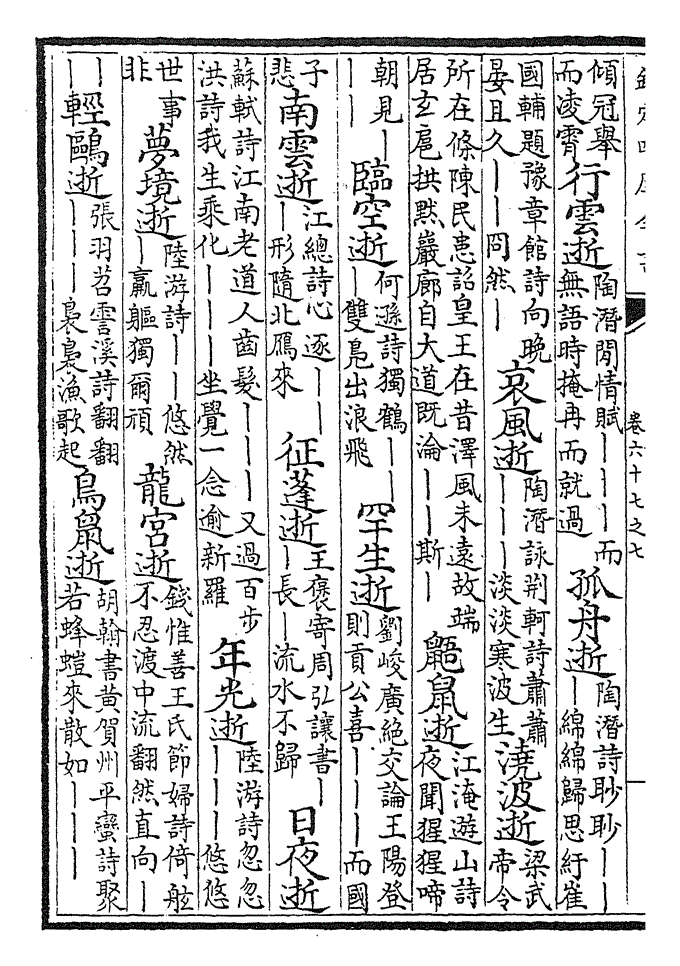 卷六十七之七
傾冠舉
而凌霄
行雲逝
陶潛閒情賦｜｜｜而
無語時掩冉而就過
孤舟逝
陶潛詩眇眇｜｜
｜綿綿歸思紆崔
國輔題豫章館詩向晩
晏且久｜｜問然｜
哀風逝
陶潛詠荆軻詩蕭蕭
｜｜｜淡淡寒波生
澆波逝
梁武
帝令
所在條陳民患詔皇王在昔澤風未遠故端
居玄扈拱黙巖廊自大道既淪｜｜斯｜
鼯鼠逝
江淹遊山詩
夜聞猩猩啼
朝見｜
｜｜
臨空逝
何遜詩獨鶴｜｜
｜雙鳬出浪飛
罕生逝
劉峻廣絶交論王陽登
則貢公喜｜｜｜而國
子
悲
南雲逝
江總詩心逐｜｜
｜形隨北雁來
征蓬逝
王褒寄周弘讓書｜
｜長｜流水不歸
日夜逝
蘇軾詩江南老道人齒髮｜｜｜又過百步
洪詩我生乘化｜｜｜坐覺一念逾新羅
年光逝
陸游詩忽忽
｜｜｜悠悠
世事
非
夢境逝
陸游詩｜｜悠然
｜羸軀獨爾頑
龍宮逝
錢惟善王氏節婦詩倚舷
不忍渡中流翻然直向｜
｜
｜
輕鷗逝
張羽苕霅溪詩翩翩
｜｜｜裊裊漁歌起
鳥鼠逝
胡翰書黄賀州平蠻詩聚
若蜂螘來散如｜｜｜